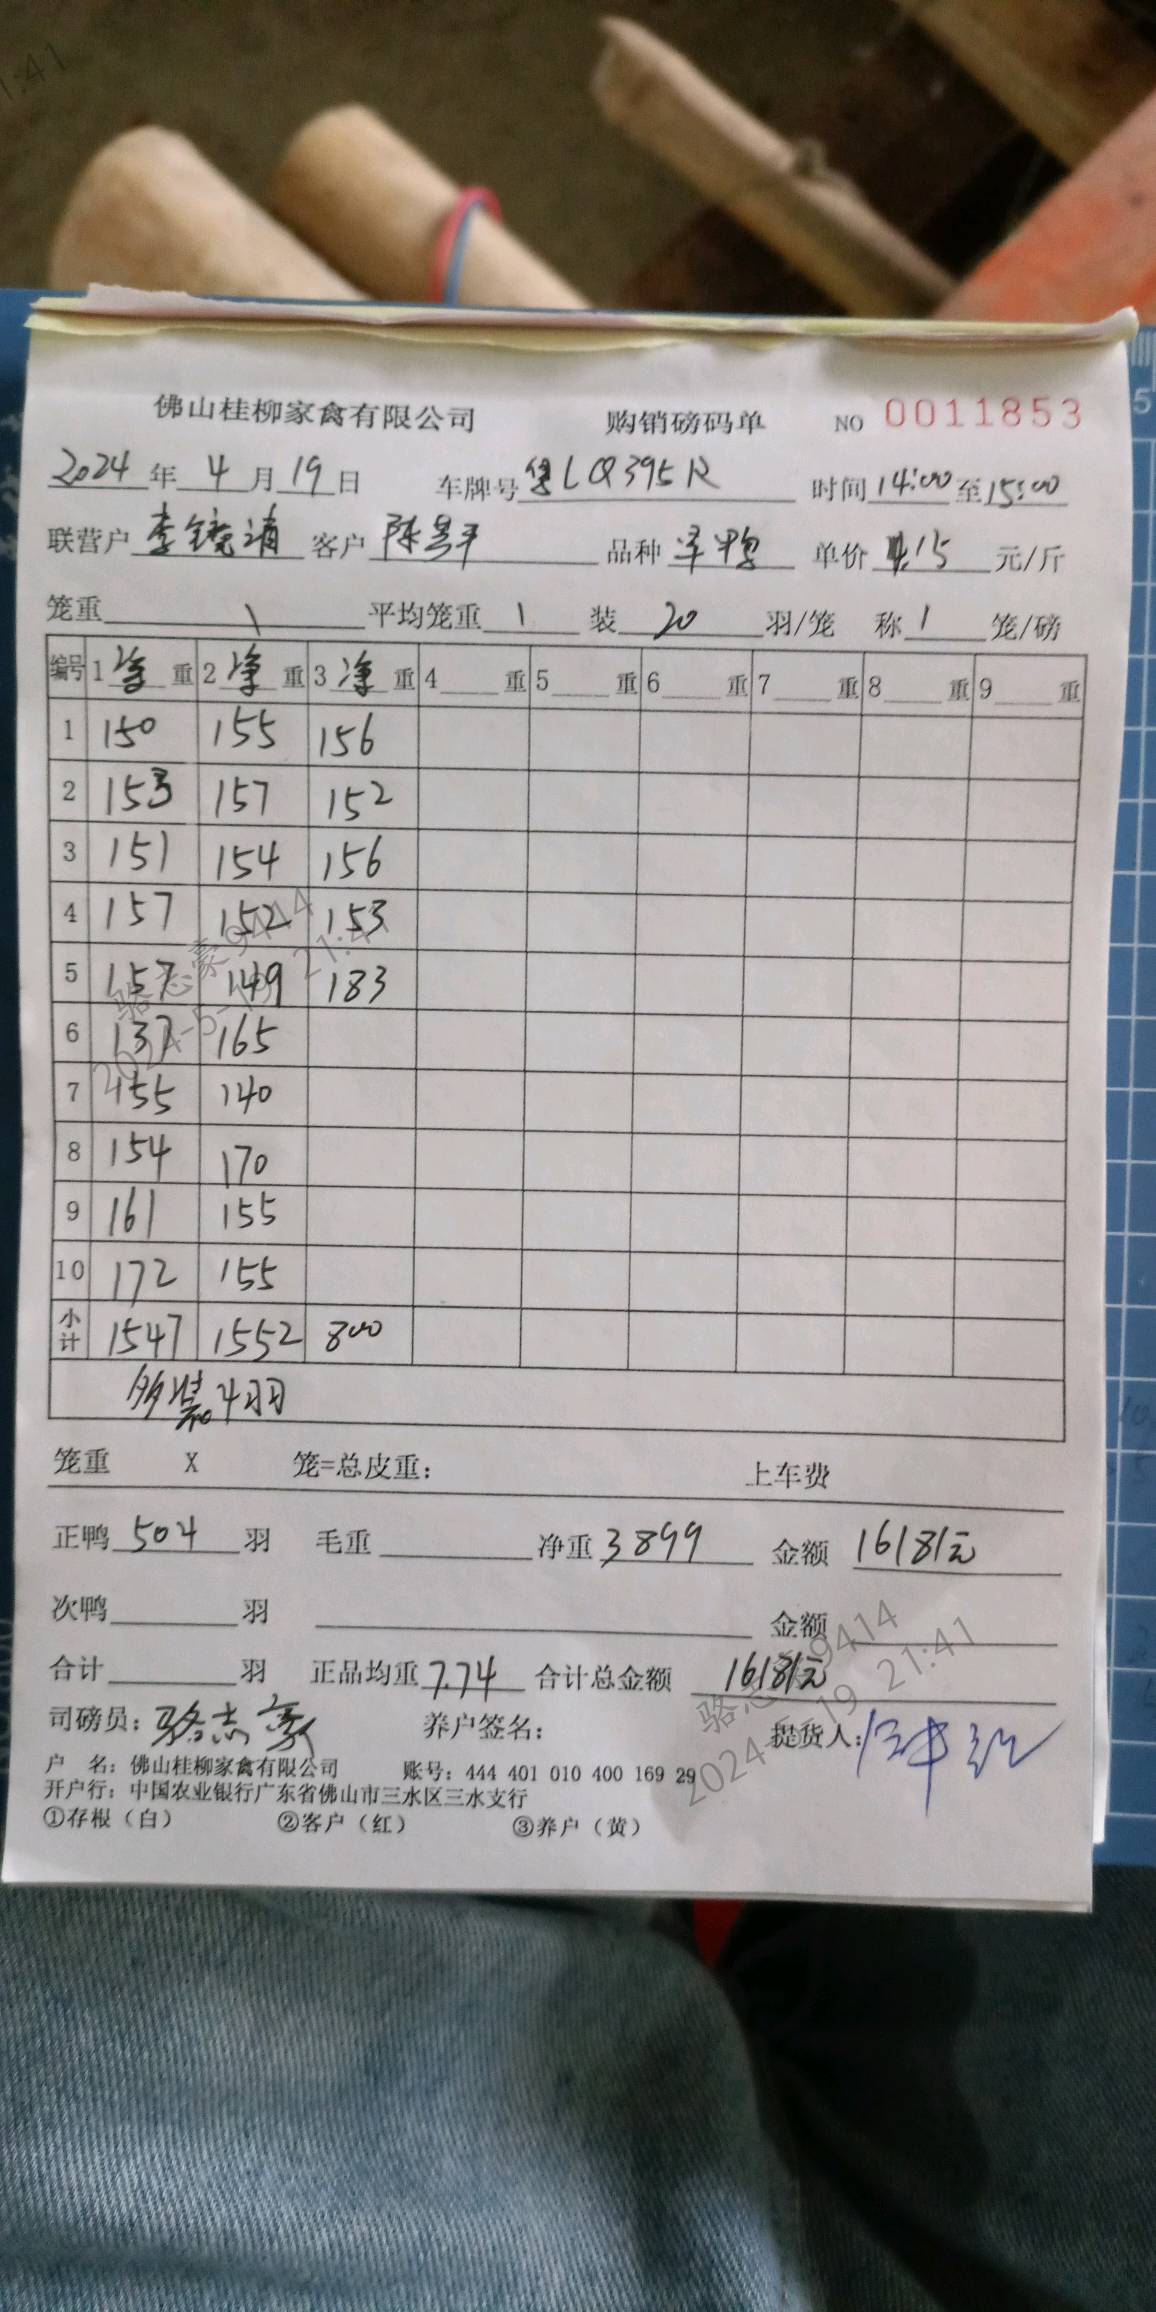 1:41
佛山桂柳家禽有限公司 购销磅码单 NO 0011853
2024年4月19日 车牌号粤LQ395R 时间14:00至15:00
联营户李镜清 客户陈昌平 品种 单价4.15元/斤
笼重 \ 平均笼重 \ 装20羽/笼 称1笼/磅
编号 1净重 2净重 3净重 4重 5重 6重 7重 8重 9重
1 150 155 156
2 153 157 152
3 151 154 156
4 157 152 153
5 157 149 183
6 137 165
7 155 140
8 154 170
9 161 155
10 172 155
小计 1547 1552 800
多装4羽
笼重 X 笼=总皮重: 上车费
正鸭504羽 毛重 净重3899 金额16181元
次鸭羽 金额
合计羽 正品均重7.74 合计总金额16181元
司磅员:骆志豪 养户签名: 提货人:
户 名: 佛山桂柳家禽有限公司 账号: 444 401 010 400 169 29
开户行: 中国农业银行广东省佛山市三水区三水支行
①存根（白） ②客户（红） ③养户（黄）
骆志豪9414
2024-5-19 21:41
骆志豪9414
2024-5-19 21:41